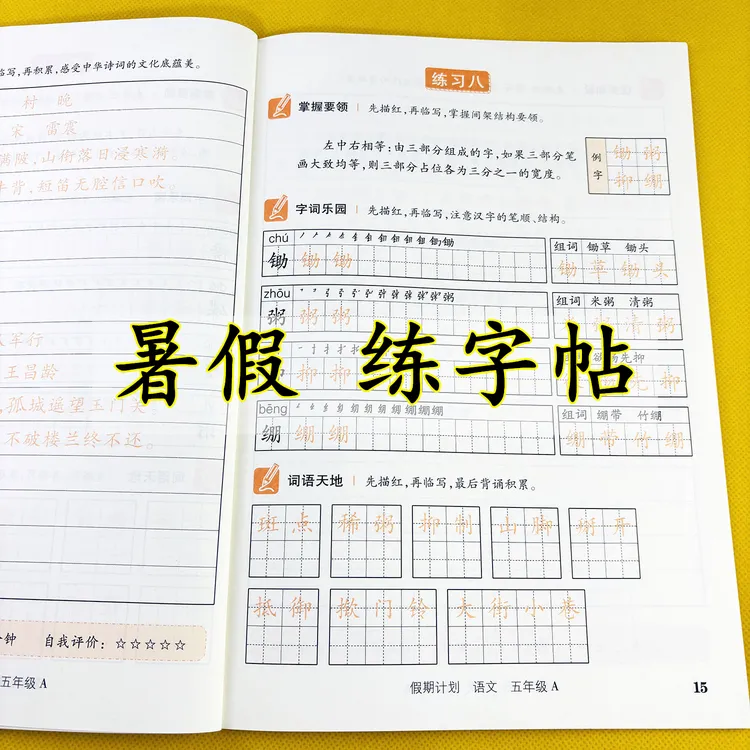 临写,再积累,感受中华诗词的文化底蕴美。
村 晚
宋 雷震
满陂,山衔落日浸寒漪
牛背,短笛无腔信口吹
从军行
王昌龄
孤城遥望玉门关
不破楼兰终不还。
分钟 自我评价:☆☆☆☆☆
五年级 A
练习八
掌握要领 先描红,再临写,掌握间架结构要领。
左中右相等:由三部分组成的字,如果三部分笔
画大致均等,则三部分占位各为三分之一的宽度。
例字
锄 粥
抑 绷
字词乐园 先描红,再临写,注意汉字的笔顺、结构。
chú
锄 锄 锄
组词 锄草 锄头
锄 草 锄 头
zhōu
粥 粥 粥
组词 米粥 清粥
清 粥
暑假 练字帖
抑 抑
欲扬先抑
先 抑
bēng
绷 绷 绷
组词 绷带 竹绷
绷 带 竹 绷
词语天地 先描红,再临写,最后背诵积累。
斑 点 稀 粥 抑 制 山 脚
抵 御 揿 门 铃 大 街 小 巷
假期计划 语文 五年级 A
15